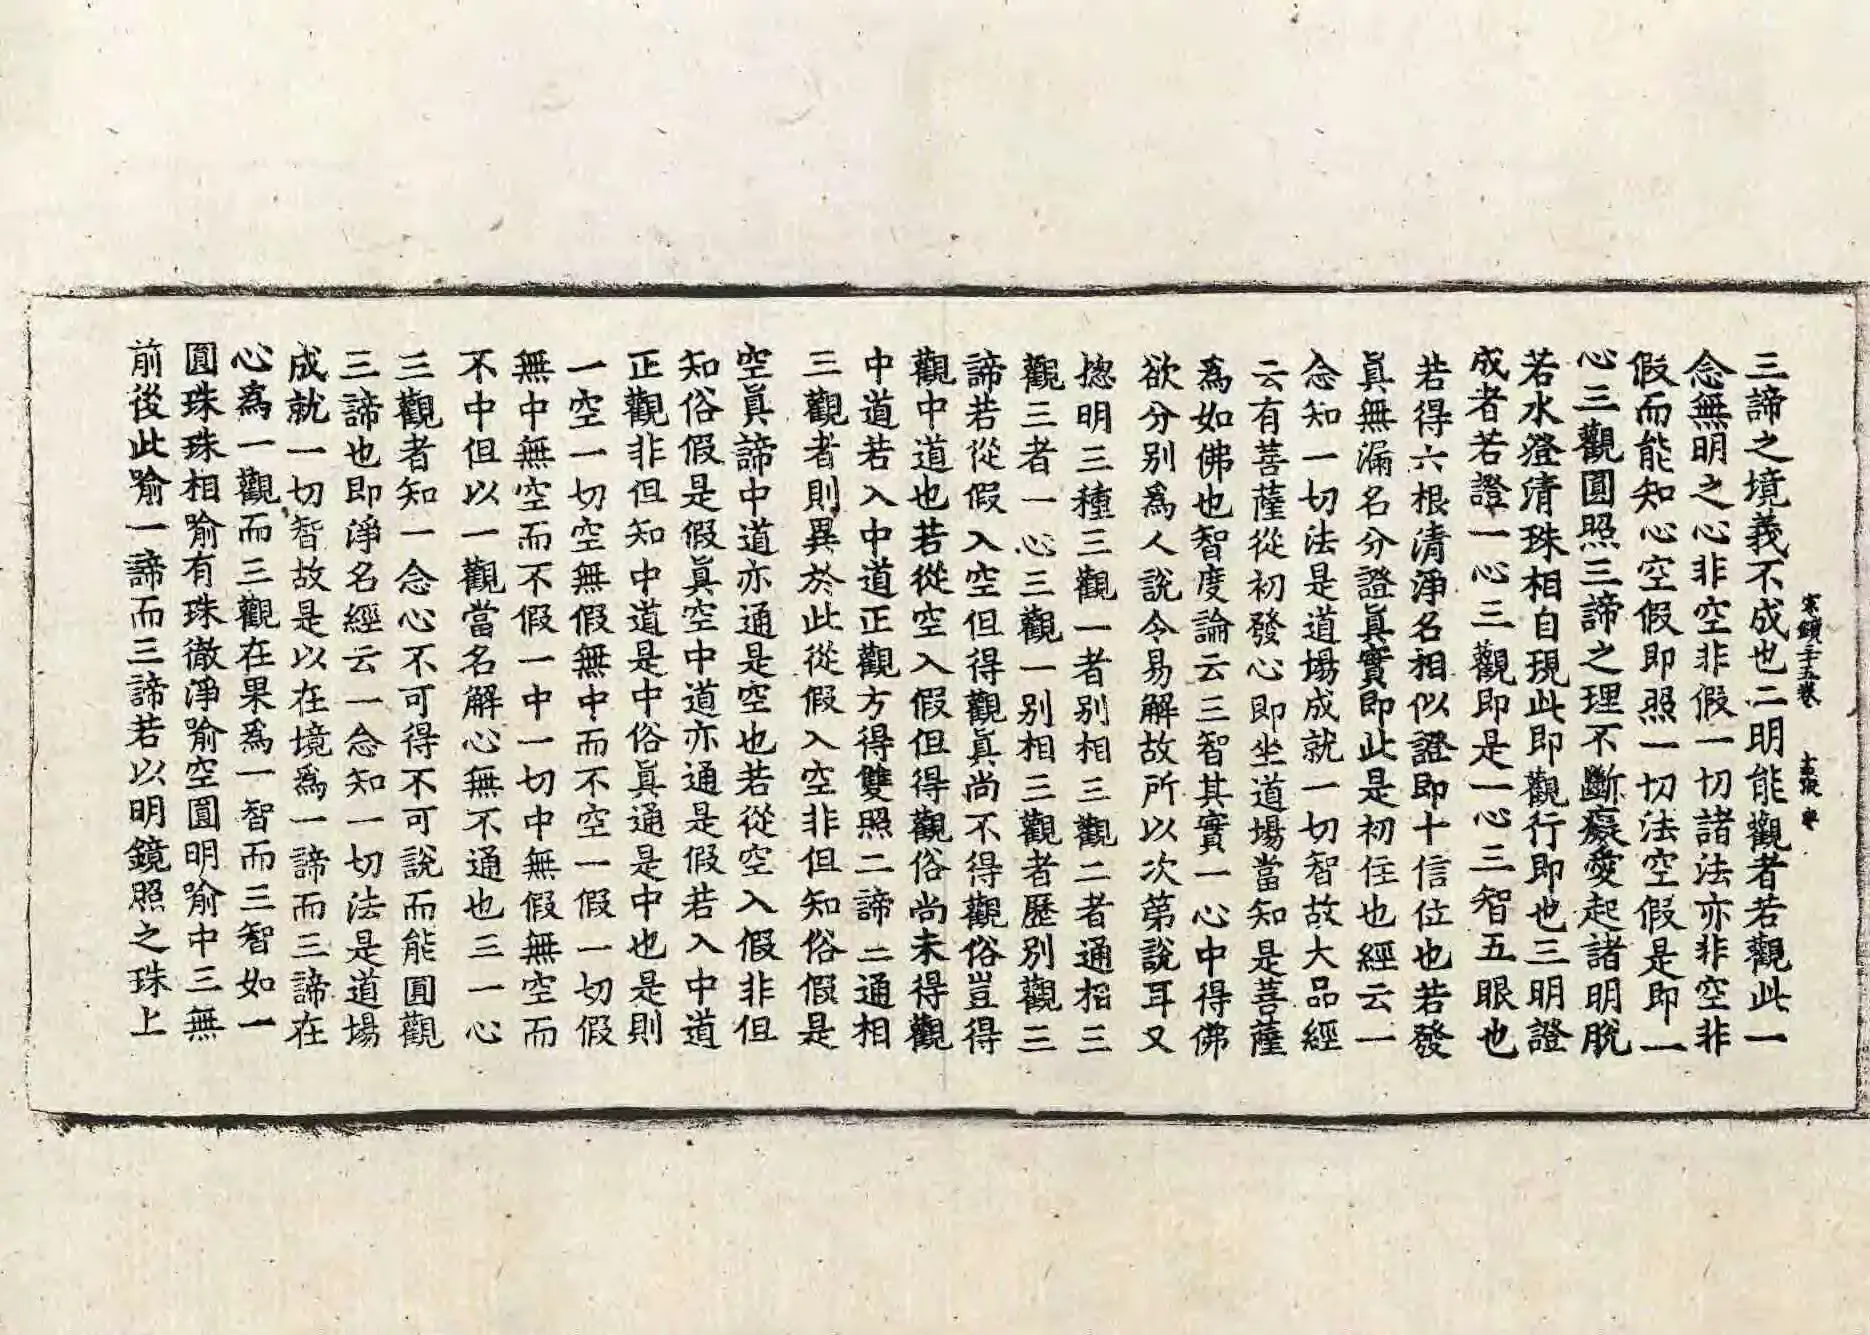 三諦之境義不成也二明能觀者若觀此一
念無明之心非空非假一切諸法亦非空非
假而能知心空假即照一切法空假是即一
心三觀圓照三諦之理不斷癡愛起諸明脫
若水澄清珠相自現此即觀行即也三明證
成者若證一心三觀即是一心三智五眼也
若得六根清淨名相似證即十信位也若發
眞無漏名分證眞實即此是初住也經云一
念知一切法是道場成就一切智故大品經
云有菩薩從初發心即坐道場當知是菩薩
爲如佛也智度論云三智其實一心中得佛
欲分別爲人說令易解故所以次第說耳又
揔明三種三觀一者別相三觀二者通相三
觀三者一心三觀一別相三觀者歷別觀三
諦若從假入空但得觀眞尚不得觀俗豈得
觀中道也若從空入假但得觀俗尚未得觀
中道若入中道正觀方得雙照二諦二通相
三觀者則異於此從假入空非但知俗假是
空眞諦中道亦通是空也若從空入假非但
知俗假是假眞空中道亦通是假若入中道
正觀非但知中道是中俗眞通是中也是則
一空一切空無假無中而不空一假一切假
無中無空而不假一中一切中無假無空而
不中但以一觀當名解心無不通也三一心
三觀者知一念心不可得不可說而能圓觀
三諦也即淨名經云一念知一切法是道場
成就一切智故是以在境爲一諦而三諦在
心爲一觀而三觀在果爲一智而三智如一
圓珠珠相喻有珠徹淨喻空圓明喻中三無
前後此喻一諦而三諦若以明鏡照之珠上